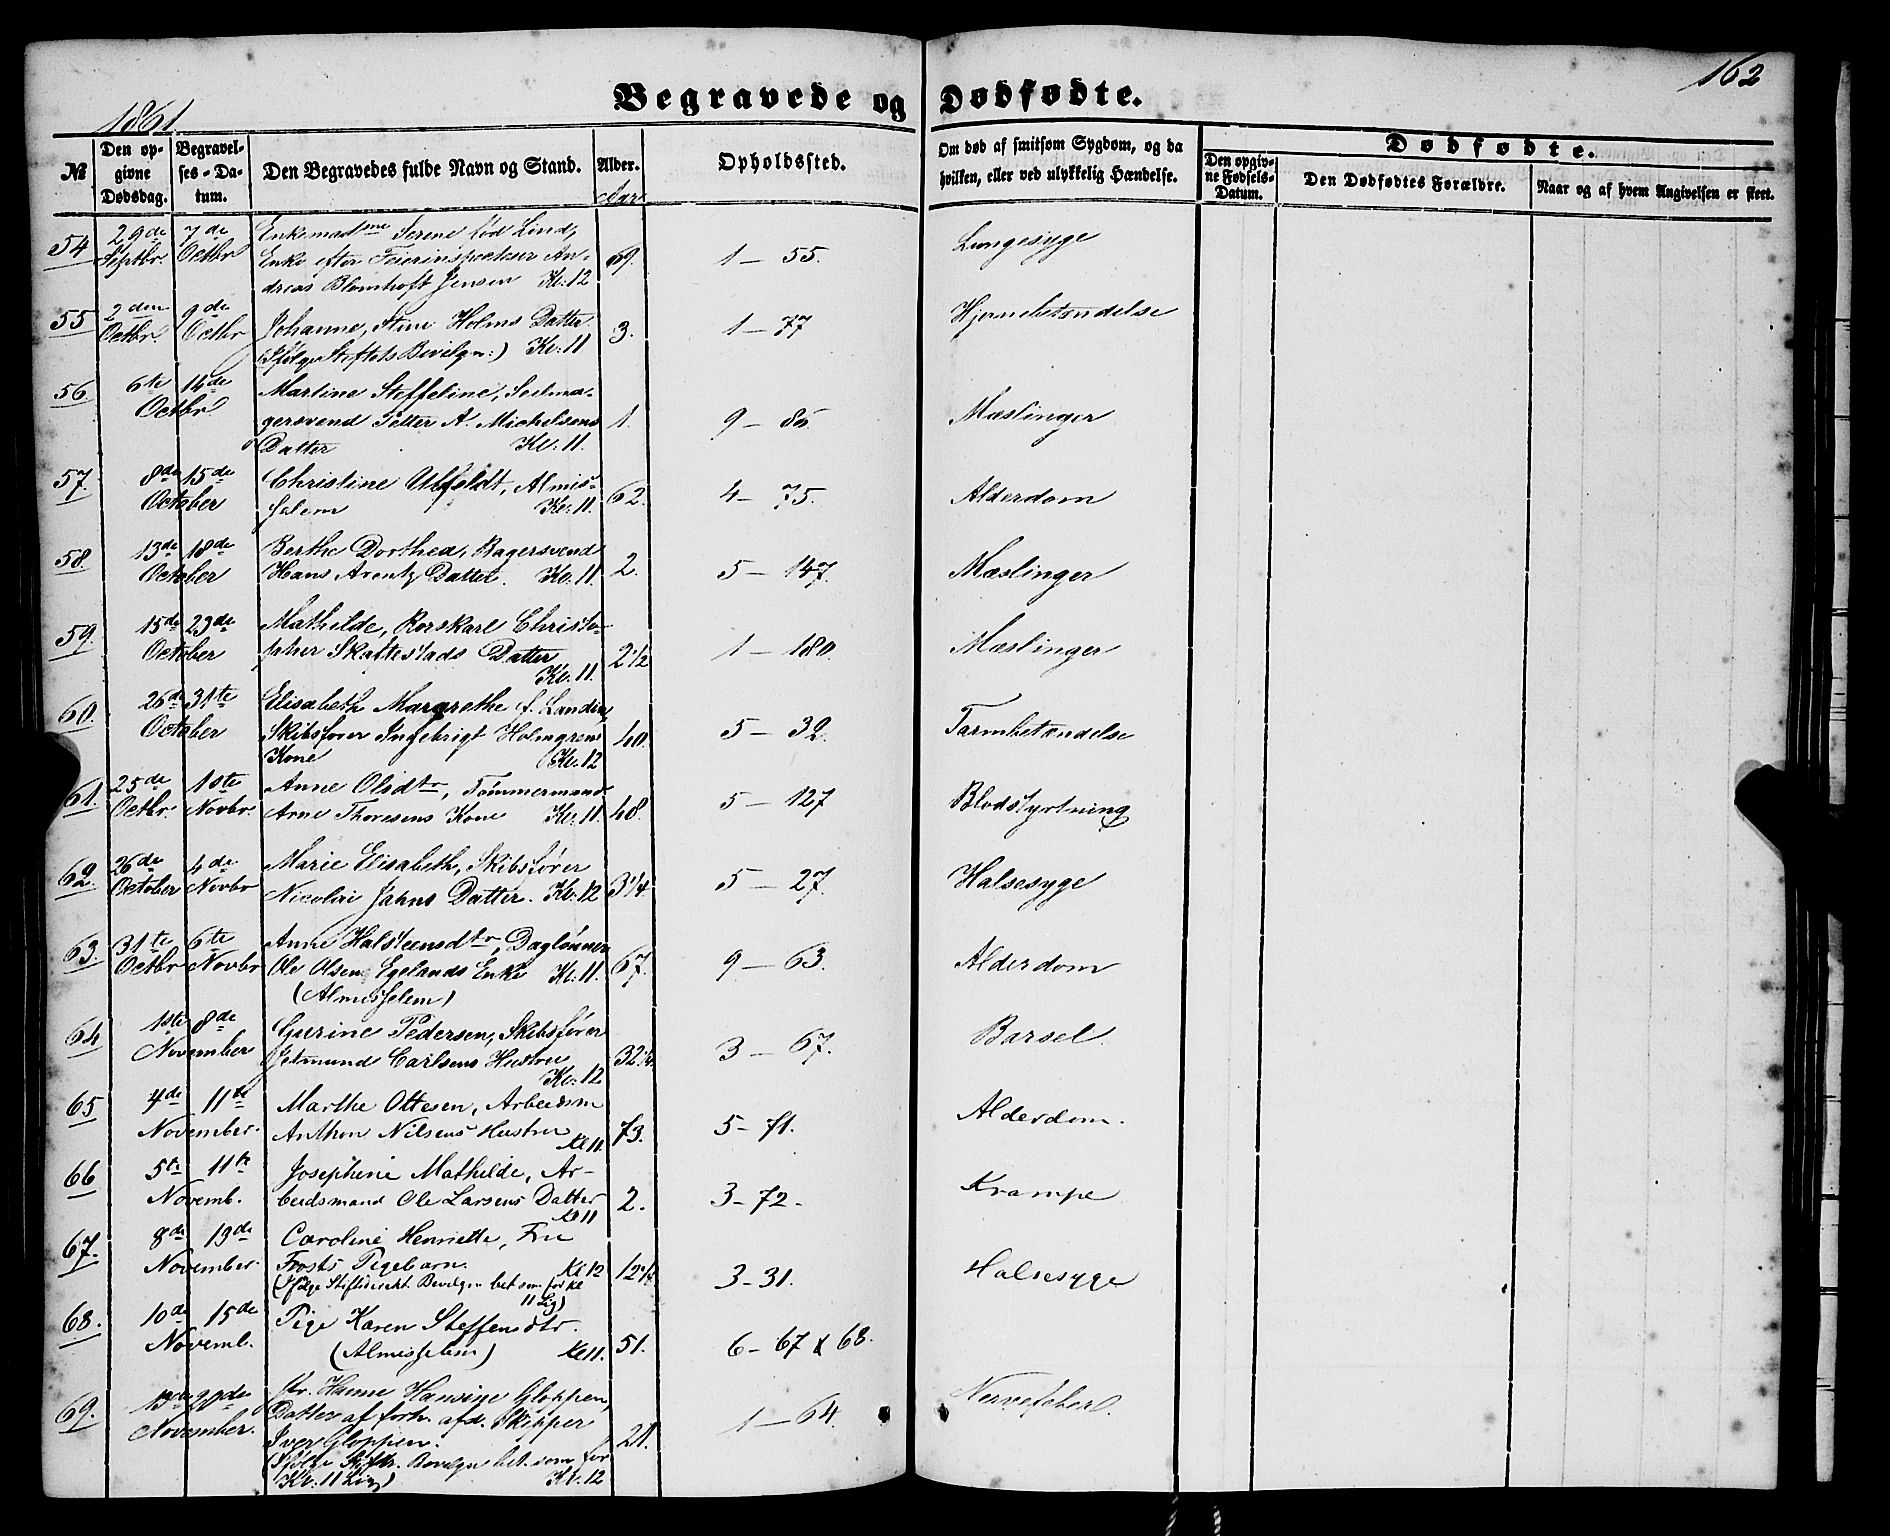 162
Begravede og Dødfødte.
1861
№
Den opgivne Dødsdag.
Begravelses-Datum.
Den Begravedes fulde Navn og Stand.
Alder.
Aar
Opholdssted.
Om død af smitsom Sygdom, og da hvilken, eller ved ulykkelig Hændelse.
Dødfødte.
Den opgivne Fødsels-Datum.
Den Dødfødtes Forældre.
Naar og af hvem Angivelsen er skeet.
54 29de Septbr. 7de Octbr Enkemadme Serine fød Lind,
Enke efter Feierinspecteur An-
dreas Blomhoft Jensen Kl: 12 69. 1 – 55. Lungesyge
55 2den Octbr. 9de Octbr Johanne, Stine Holms Datter
(Ifølge Stiftets Bevilgn:) Kl: 11 3. 1 – 77 Hjernebetændelse
56 6te 14de Octbr Martine Steffeline, Seilma-
gersvend Petter A. Michelsens
Datter Kl: 11. 1. 9 – 85 Mæslinger
57. 8de 15de October Christine Ulfeldt, Almis-
selem Kl: 11. 62. 4 – 75. Alderdom
58. 13de 18de October Berthe Dorthea, Bagersvend
Hans Arentz Datter. Kl: 11. 2. 5 – 147. Mæslinger
59. 15de 23de October Mathilde, Rorskarl Christo-
pher Skattestads Datter
Kl: 11. 2 1/2 1 – 180. Mæslinger
60. 26de 31te October Elisabeth Margrethe f. Landin,
Skibsfører Ingebrigt Holmgrens
Kone Kl: 12 40. 5 – 32. Tarmbetændelse
61. 25de Octbr. 1ste Novbr. Anne Olsdtr, Tømmermand
Arne Thoresens Kone Kl: 11. 48. 5 – 127 Blodstyrtning
62. 26de October 4de Novbr Marie Elisabeth, Skibsfører
Nicolai Jahns Datter. Kl: 12 3 1/4. 5 – 27. Halsesyge
63. 31te Octbr 6te Novbr Anne Halsteensdtr, Daglønner
Ole Olsen Egelands Enke Kl: 11. 67. 9 – 63. Alderdom
(Almisselem)
64 1ste 8de November Gurine Pedersen, Skibsfører
Jetmund Carlsens Hustru
Kl: 12 32 1/4. 3 – 67. Barsel
65 4de 11te November. Marthe Ottesen, Arbeidsm
Anthon Nilsens Hustru
Kl 11. 73. 5 – 71. Alderdom.
66 5te 11te Novemb. Josephine Mathilde, Ar-
beidsmand Ole Larsens Datter
Kl 11 2. 3 – 72. Krampe
67. 8de 13de November. Caroline Henriette, Fru
Frosts Pigebarn. Kl 12 12 1/4 3 – 31. Halsesyge
(Ifølge Stiftsdirekt. Bevilgn bet som for Kl
11 Lig)
68. 10de 15de Novemb. Pige Karen Steffensdtr.
(Almisselem) Kl 11. 51. 6 – 67 & 68.
69. 13de 20de November. Jfr. Hanne Hansine Gloppen,
Datter af forhv. afd. Skipper
Iver Gloppen. 21. 1 – 64. Nervefeber.
(Ifølge Stiftr. Bevilgn bet. som for
Kl. 11 Lig) Kl. 12